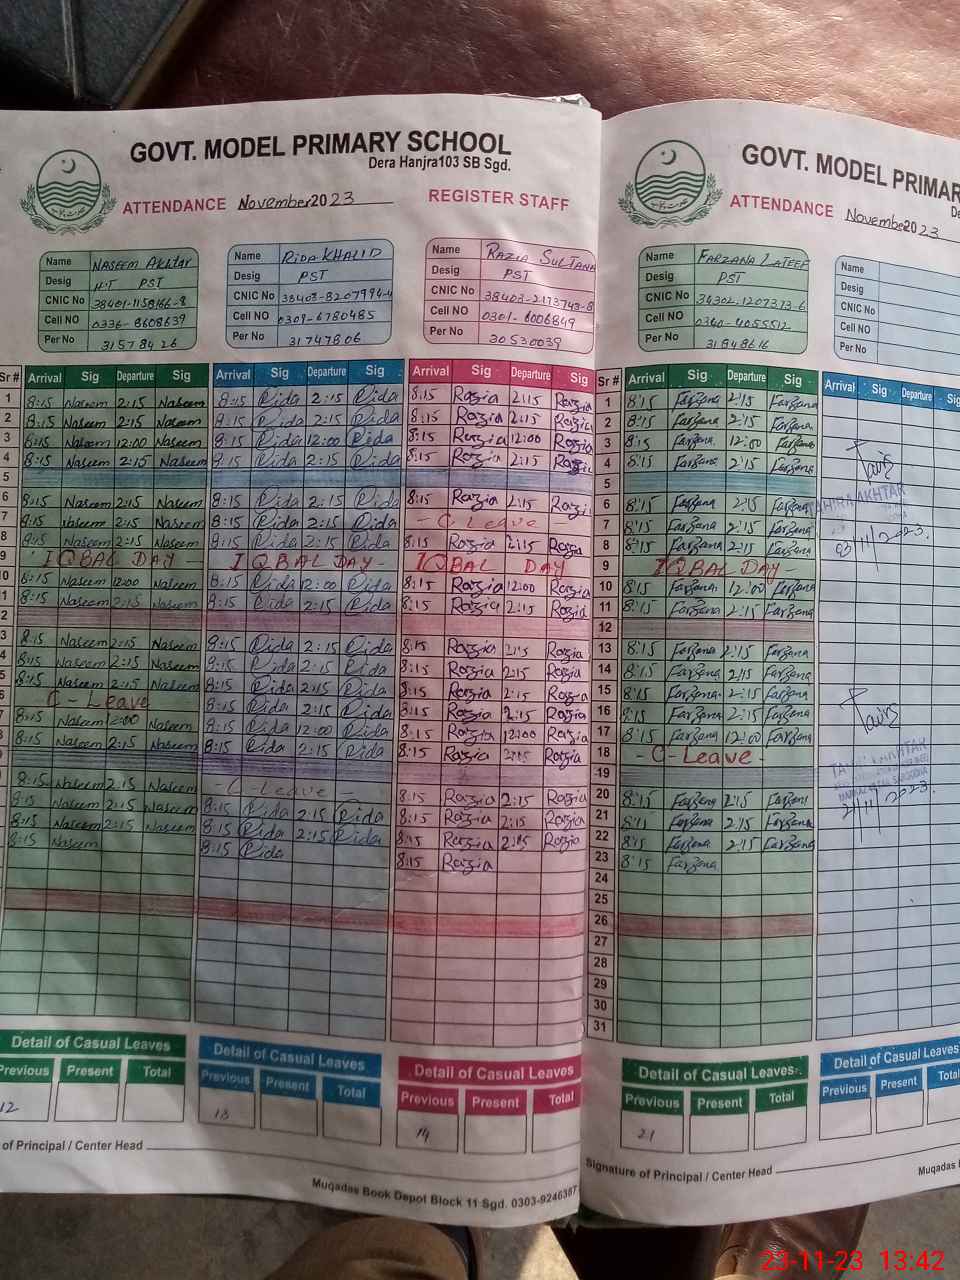 GOVT. MODEL PRIMARY SCHOOL
Dera Hanjra103 SB Sgd.
ATTENDANCE November2023 REGISTER STAFF
Name NASEEM AKhtar
Desig H.T PST
CNIC No 38401-1158166-8
Cell NO 0336-8608639
Per No 31578426
Name RIDA KHALID
Desig PST
CNIC No 38403-8207994-4
Cell NO 0307-6780485
Per No 31747806
Name RAZIA SULTANA
Desig PST
CNIC No 38403-2173743-8
Cell NO 0301-6006849
Per No 30530039
Sr # Arrival Sig Departure Sig Arrival Sig Departure Sig Arrival Sig Departure Sig
1 8:15 Naseem 2:15 Naseem 8:15 Rida 2:15 Rida 8:15 Razia 2:15 Razia
2 8:15 Naseem 2:15 Naseem 8:15 Rida 2:15 Rida 8:15 Razia 2:15 Razia
3 8:15 Naseem 12:00 Naseem 8:15 Rida 12:00 Rida 8:15 Razia 12:00 Razia
4 8:15 Naseem 2:15 Naseem 8:15 Rida 2:15 Rida 8:15 Razia 2:15 Razia
5
6 8:15 Naseem 2:15 Naseem 8:15 Rida 2:15 Rida 8:15 Razia 2:15 Razia
7 8:15 Naseem 2:15 Naseem 8:15 Rida 2:15 Rida - C Leave -
8 8:15 Naseem 2:15 Naseem 8:15 Rida 2:15 Rida 8:15 Razia 2:15 Razia
9 IQBAL DAY - IQBAL DAY - IQBAL DAY
10 8:15 Naseem 12:00 Naseem 8:15 Rida 12:00 Rida 8:15 Razia 12:00 Razia
11 8:15 Naseem 2:15 Naseem 8:15 Rida 2:15 Rida 8:15 Razia 2:15 Razia
2
3 8:15 Naseem 2:15 Naseem 8:15 Rida 2:15 Rida 8:15 Razia 2:15 Razia
4 8:15 Naseem 2:15 Naseem 8:15 Rida 2:15 Rida 8:15 Razia 2:15 Razia
5 8:15 Naseem 2:15 Naseem 8:15 Rida 2:15 Rida 8:15 Razia 2:15 Razia
6 C - Leave 8:15 Rida 2:15 Rida 8:15 Razia 2:15 Razia
7 8:15 Naseem 12:00 Naseem 8:15 Rida 12:00 Rida 8:15 Razia 12:00 Razia
8 8:15 Naseem 2:15 Naseem 8:15 Rida 2:15 Rida 8:15 Razia 2:15 Razia
8:15 Naseem 2:15 Naseem - C - Leave - 8:15 Razia 2:15 Razia
8:15 Naseem 2:15 Naseem 8:15 Rida 2:15 Rida 8:15 Razia 2:15 Razia
8:15 Naseem 2:15 Naseem 8:15 Rida 2:15 Rida 8:15 Razia 2:15 Razia
8:15 Naseem 8:15 Rida 8:15 Razia
Detail of Casual Leaves Detail of Casual Leaves Detail of Casual Leaves
Previous Present Total Previous Present Total Previous Present Total
12 13 14
of Principal / Center Head
Muqadas Book Depot Block 11 Sgd. 0303-9246387
GOVT. MODEL PRIMAR
ATTENDANCE November2023
Name FARZANA LATEEF
Desig PST
CNIC No 34302-1207373-6
Cell NO 0340-4055512
Per No 31848616
Name
Desig
CNIC No
Cell NO
Per No
Sr # Arrival Sig Departure Sig Arrival Sig Departure Sig
1 8:15 Farzana 2:15 Farzana
2 8:15 Farzana 2:15 Farzana
3 8:15 Farzana 12:00 Farzana
4 8:15 Farzana 2:15 Farzana
5
6 8:15 Farzana 2:15 Farzana
7 8:15 Farzana 2:15 Farzana
8 8:15 Farzana 2:15 Farzana
9 IQBAL DAY -
10 8:15 Farzana 12:00 Farzana
11 8:15 Farzana 2:15 Farzana
12
13 8:15 Farzana 2:15 Farzana
14 8:15 Farzana 2:15 Farzana
15 8:15 Farzana 2:15 Farzana
16 8:15 Farzana 2:15 Farzana
17 8:15 Farzana 12:00 Farzana
18 - C - Leave -
19
20 8:15 Farzana 2:15 Farzana
21 8:15 Farzana 2:15 Farzana
22 8:15 Farzana 2:15 Farzana
23 8:15 Farzana
24
25
26
27
28
29
30
31
AKHTAR
03/11/2023.
AKHTAR
21/11/2023.
Detail of Casual Leaves Detail of Casual Leaves
Previous Present Total Previous Present Total
21
Signature of Principal / Center Head
Muqadas
23-11-23 13:42